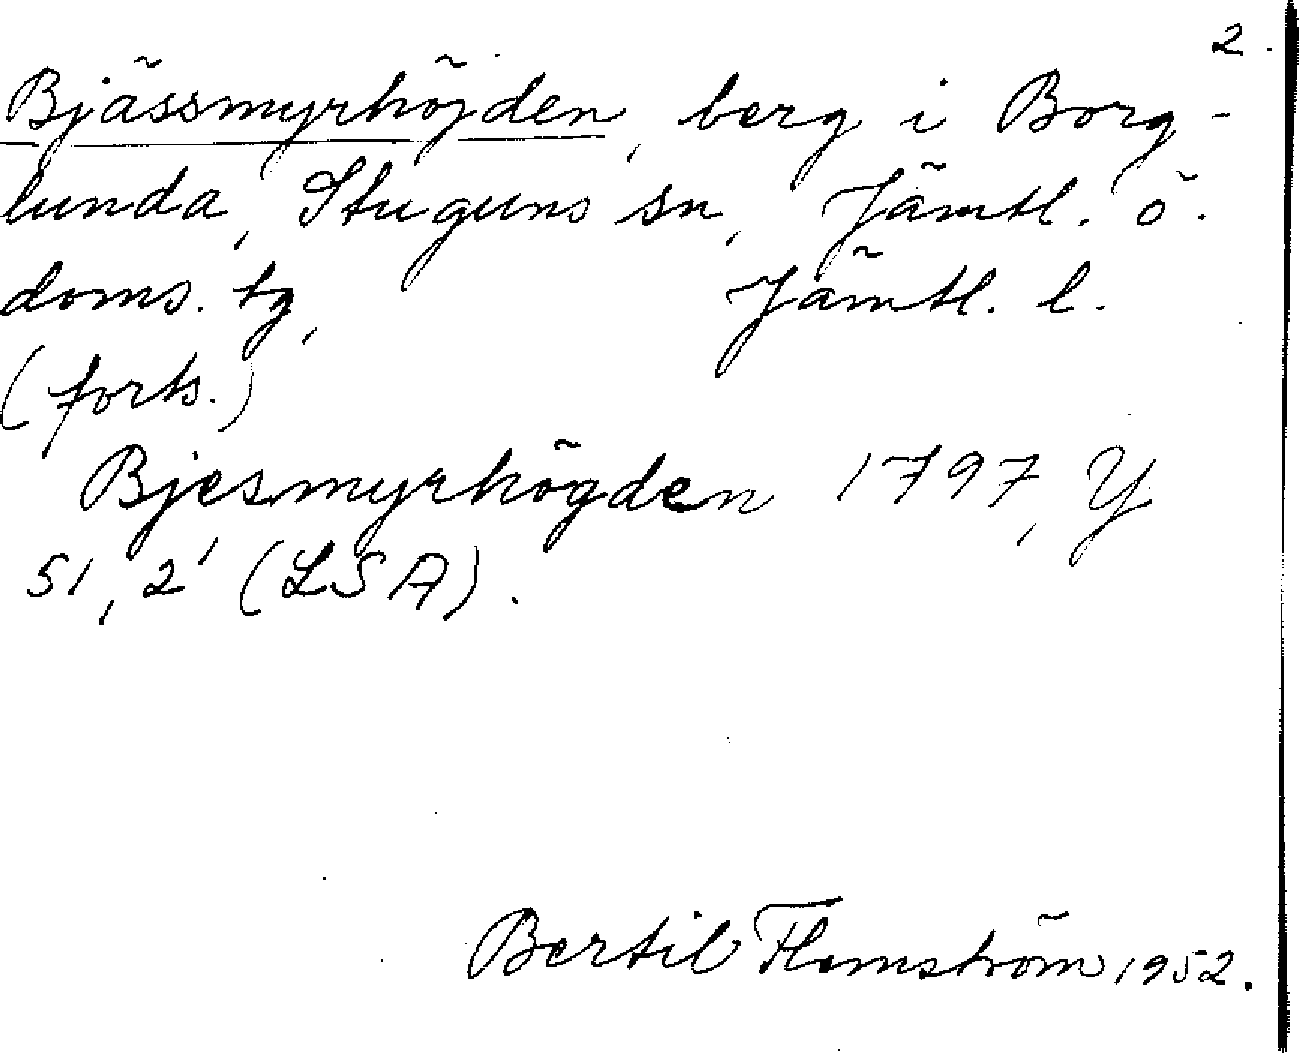 2.
Bjässmyrhöjden, berg i Borg-
lunda, Stuguns sn, Jämtl. ö.
doms. tg, Jämtl. l.
(forts.)
Bjesmyrhögden 1797, Y
51, 2' (LSA).
Bertil Flemström 1952.